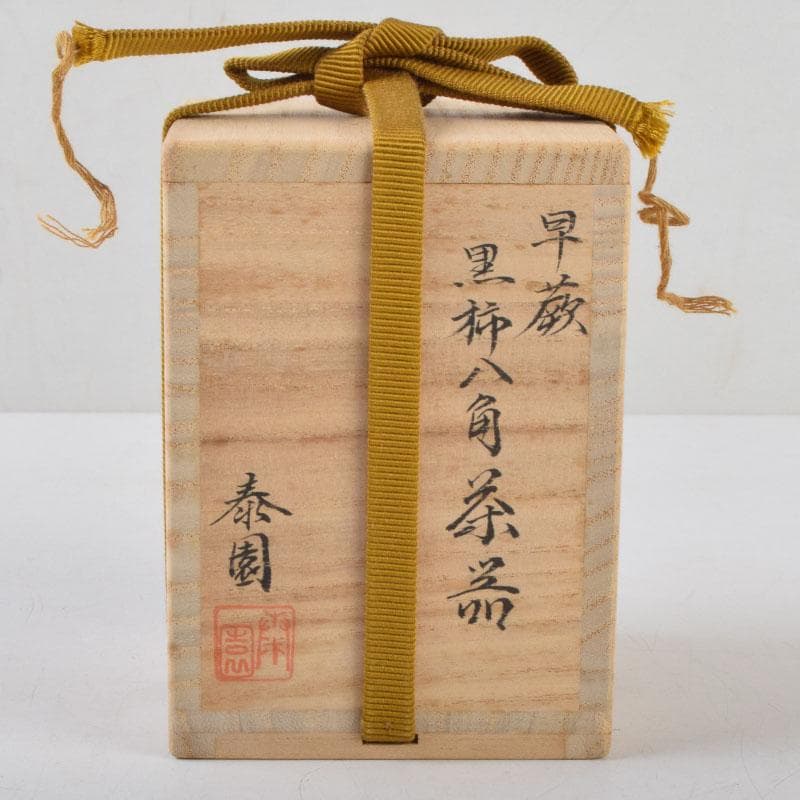 早蕨
黒柿八角茶器
泰園